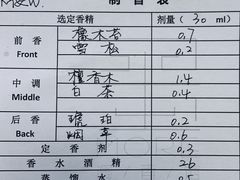 M&W.
制香表
选定香精 剂量 (30 ml)
前香 Front 橡木苔 0.7
雪松 0.2
中调 Middle 檀香木 1.4
白茶 0.4
后香 Back 琥珀 0.2
烟草 0.6
定香剂 0.3
香水酒精 26
蒸馏水 0.5